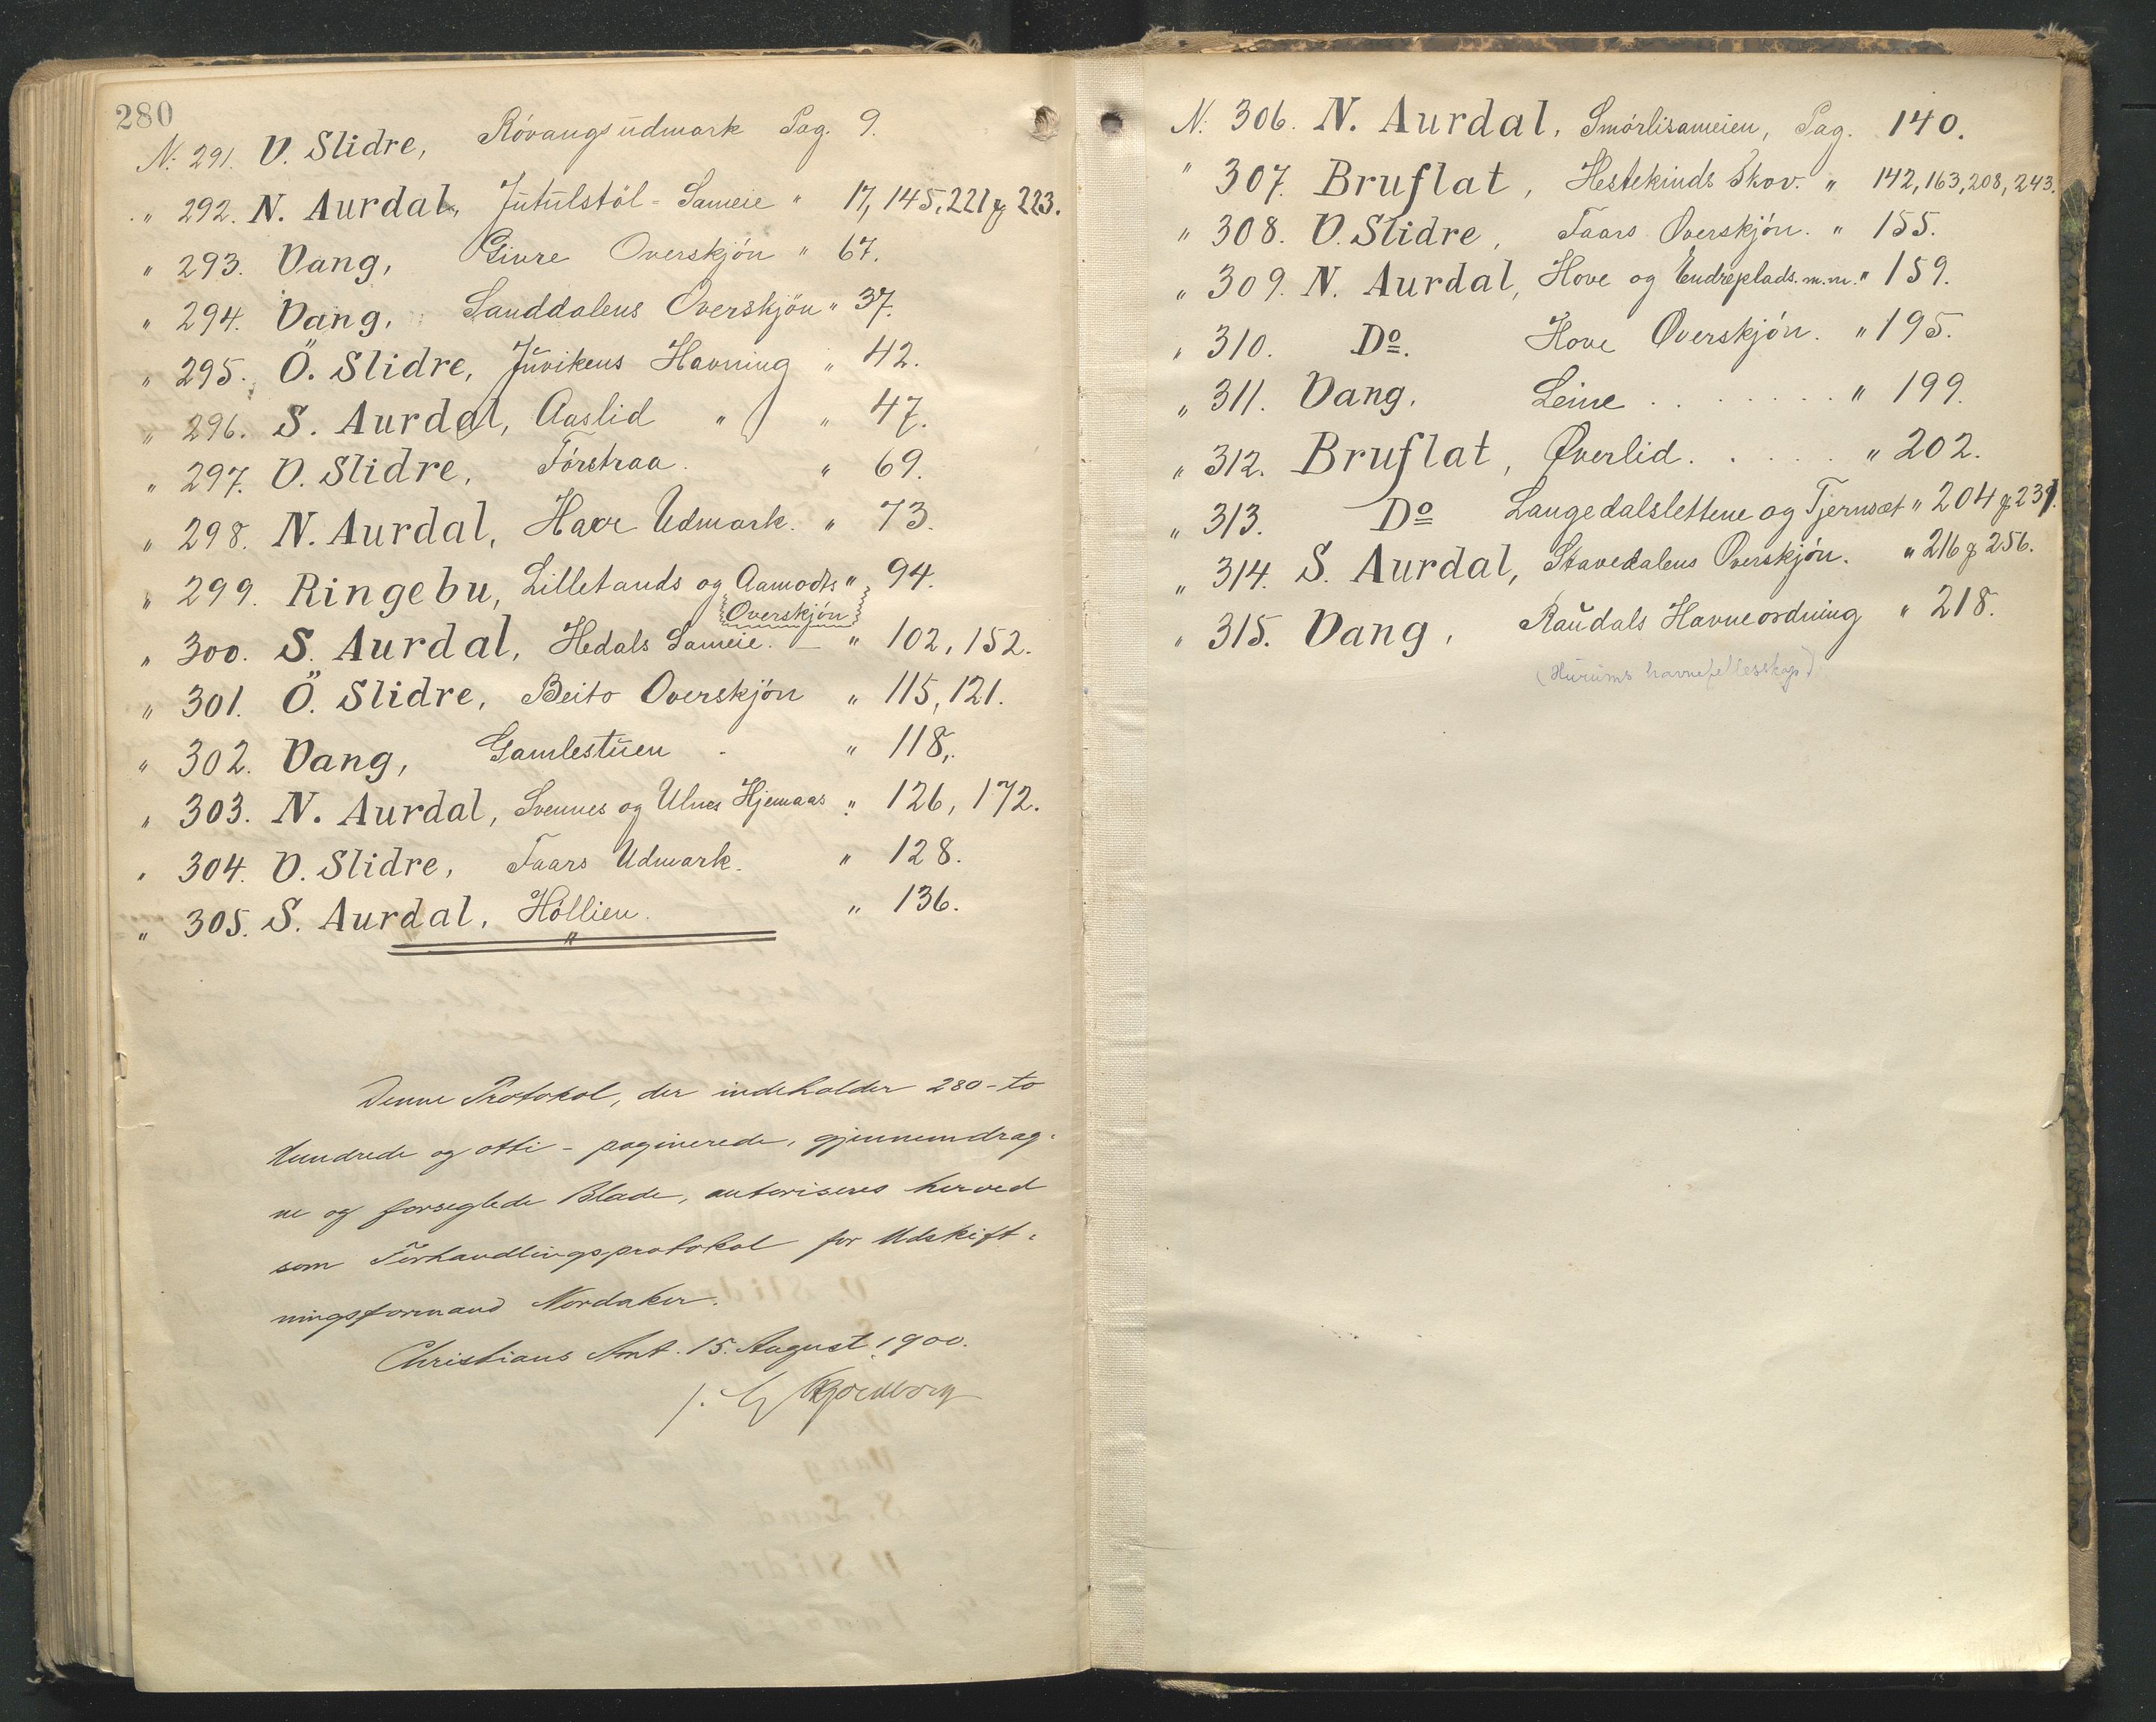 280
N: 291. V. Slidre, Róvangs udmark Pag. 9.
" 292. N. Aurdal, Jutulstöl - Sameie " 17, 145, 221 og 223.
" 293. Vang, Givre Overskjón " 67.
" 294. Vang, Sanddalens Overskjön " 37.
" 295. Ö. Slidre, Juvikens Havning " 42.
" 296. S. Aurdal, Aaslid " " 47.
" 297. V. Slidre, Fórstraa. " 69.
" 298. N. Aurdal, Udmark. " 73.
" 299. Ringebu, Lillelands og Aamodts " 94.
Overskjón
" 300. S. Aurdal, Hedals Sameie. — " 102, 152.
" 301. Ö. Slidre, Beito Overskjón " 115, 121.
" 302. Vang, Gamlestuen " 118,.
" 303. N. Aurdal, Svennes og Ulnes Hjemaas " 126, 172.
" 304. V. Slidre, Faars Udmark. " 128.
" 305. S. Aurdal, Hóllien. " 136.
"
Denne Protokol, der indeholder 280 - to
Hundrede og otti - paginerede, gjennemdrag-
ne og forseglede Blade, autoriseres herved
som Forhandlingsprotokol for Udskift-
ningsformand Nordaker.
Christians Amt. 15. August 1900.
N: 306. N. Aurdal, Smórlisameien, Pag. 140.
" 307. Bruflat, Hestekinds Skov. " 142, 163, 208, 243.
" 308. V. Slidre, Faars Overskjón. " 155.
" 309. N. Aurdal, Hove og Endreplads. m.m. " 159.
" 310. Do. Hove Overskjón. " 195.
" 311. Vang, Leine . . . . . . . " 199.
" 312. Bruflat, Øverlid. . . . . " 202.
" 313. Do Langedalslettene og Tjernsæt " 204 og 231.
" 314. S. Aurdal, Stavedalens Overskjón. " 216 og 256.
" 315. Vang, Raudals Havneordning " 218.
(Hurums havnefellesskap)